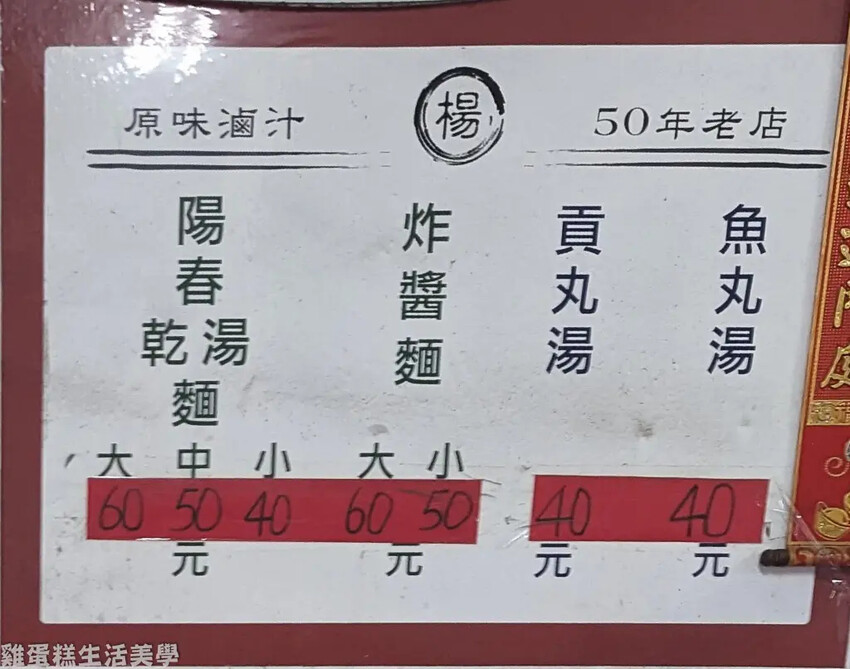 原味滷汁
楊
50年老店
魚丸湯
40
元
貢丸湯
40
元
炸醬麵
大 小
60 50
元
陽春
乾 湯
麵
大 中 小
60 50 40
元
雞蛋糕生活美學